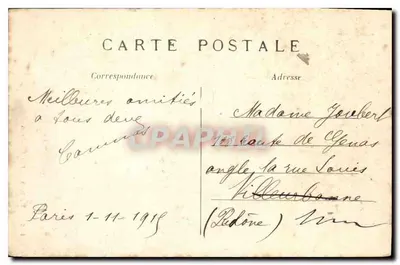 CARTE POSTALE
Correspondance
Adresse
Meilleures amitiés
à tous deux
Paris 1-11-1915
Madame Joubert
route de Genas
angle la rue Louis
Villeurbanne
(Rhône)